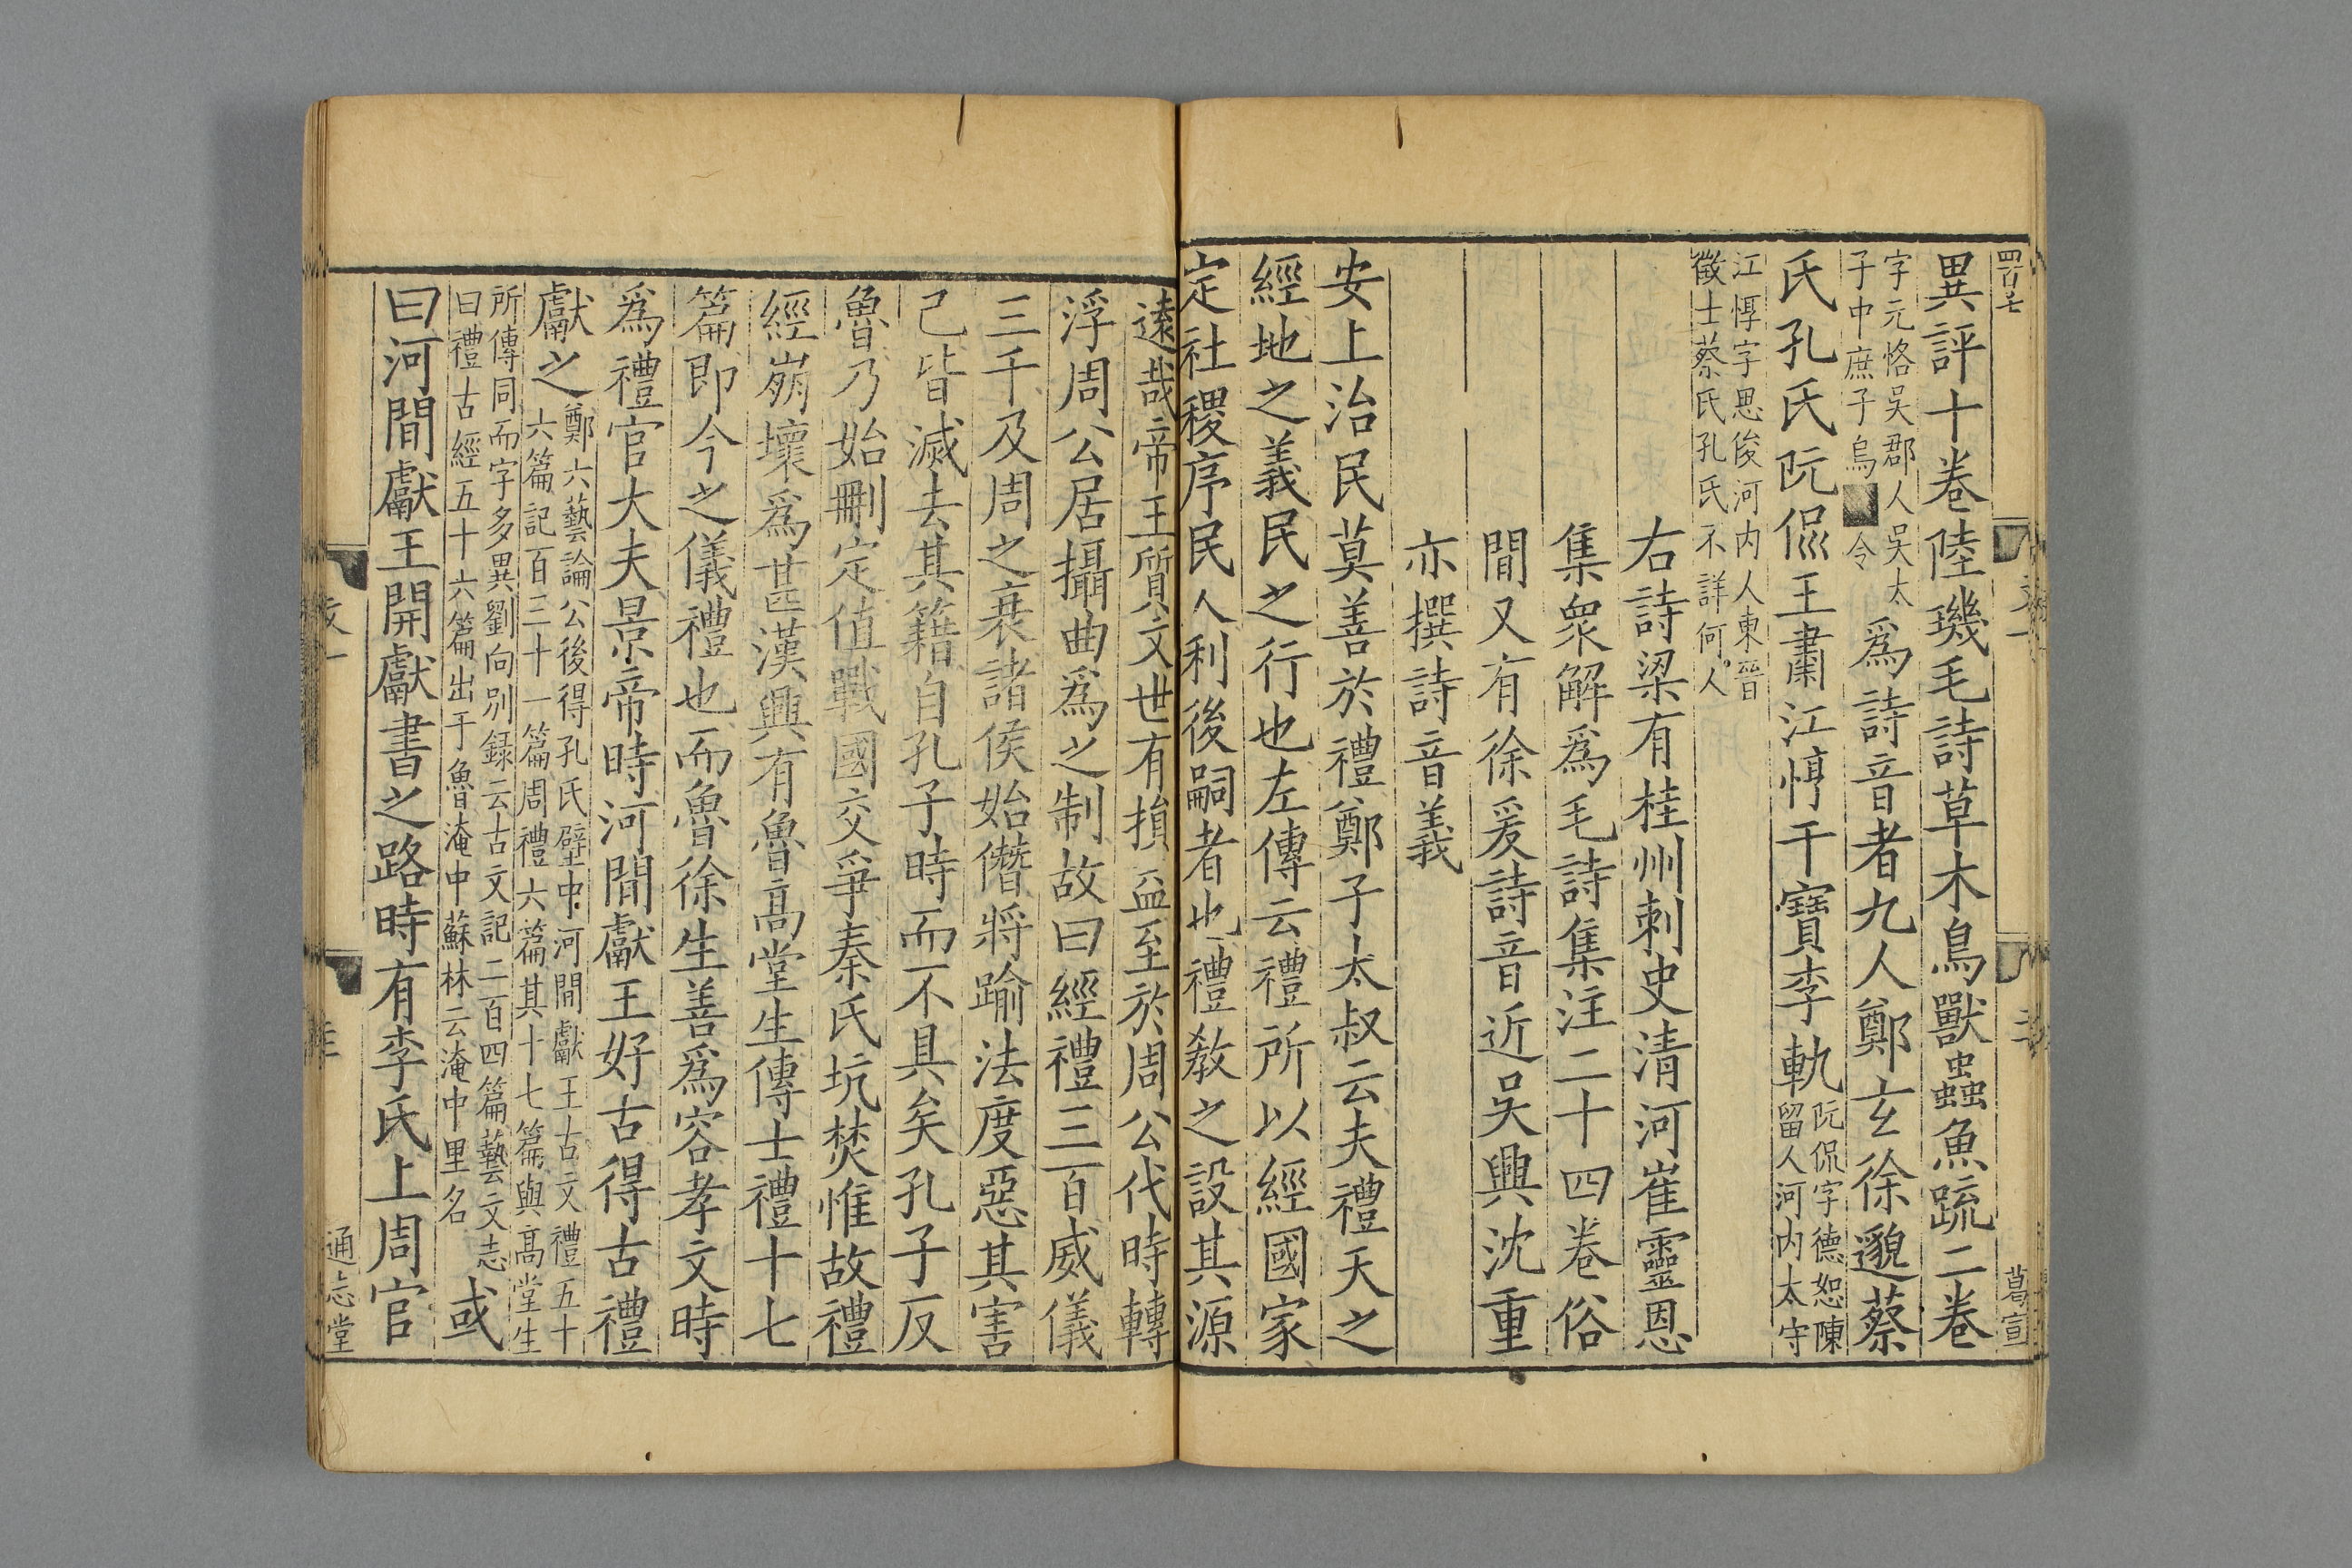 四百七
異評十卷陸璣毛詩草木鳥獸蟲魚疏二卷
字元恪吳郡人吳太
子中庶子烏
令
爲詩音者九人鄭玄徐邈蔡
氏孔氏阮侃王肅江惇干寶李軌
阮侃字德恕陳
留人河内太守
江惇字思俊河内人東晉
徵士蔡氏孔氏不詳何人
右詩梁有桂州刺史清河崔靈恩
集衆解爲毛詩集注二十四卷俗
間又有徐爰詩音近吳興沈重
亦撰詩音義
安上治民莫善於禮鄭子太叔云夫禮天之
經地之義民之行也左傳云禮所以經國家
定社稷序民人利後嗣者也禮教之設其源
葛宣
遠哉帝王質文世有損益至於周公代時轉
浮周公居攝曲爲之制故曰經禮三百威儀
三千及周之衰諸侯始僭將踰法度惡其害
己皆滅去其籍自孔子時而不具矣孔子反
魯乃始刪定值戰國交爭秦氏坑焚惟故禮
經崩壞爲甚漢興有魯高堂生傳士禮十七
篇即今之儀禮也而魯徐生善爲容孝文時
爲禮官大夫景帝時河間獻王好古得古禮
獻之
鄭六藝論公後得孔氏壁中河間獻王古文禮五十
六篇記百三十一篇周禮六篇其十七篇與高堂生
所傳同而字多異劉向別録云古文記二百四篇藝文志
曰禮古經五十六篇出于魯淹中蘇林云淹中里名
或
曰河間獻王開獻書之路時有李氏上周官
通志堂